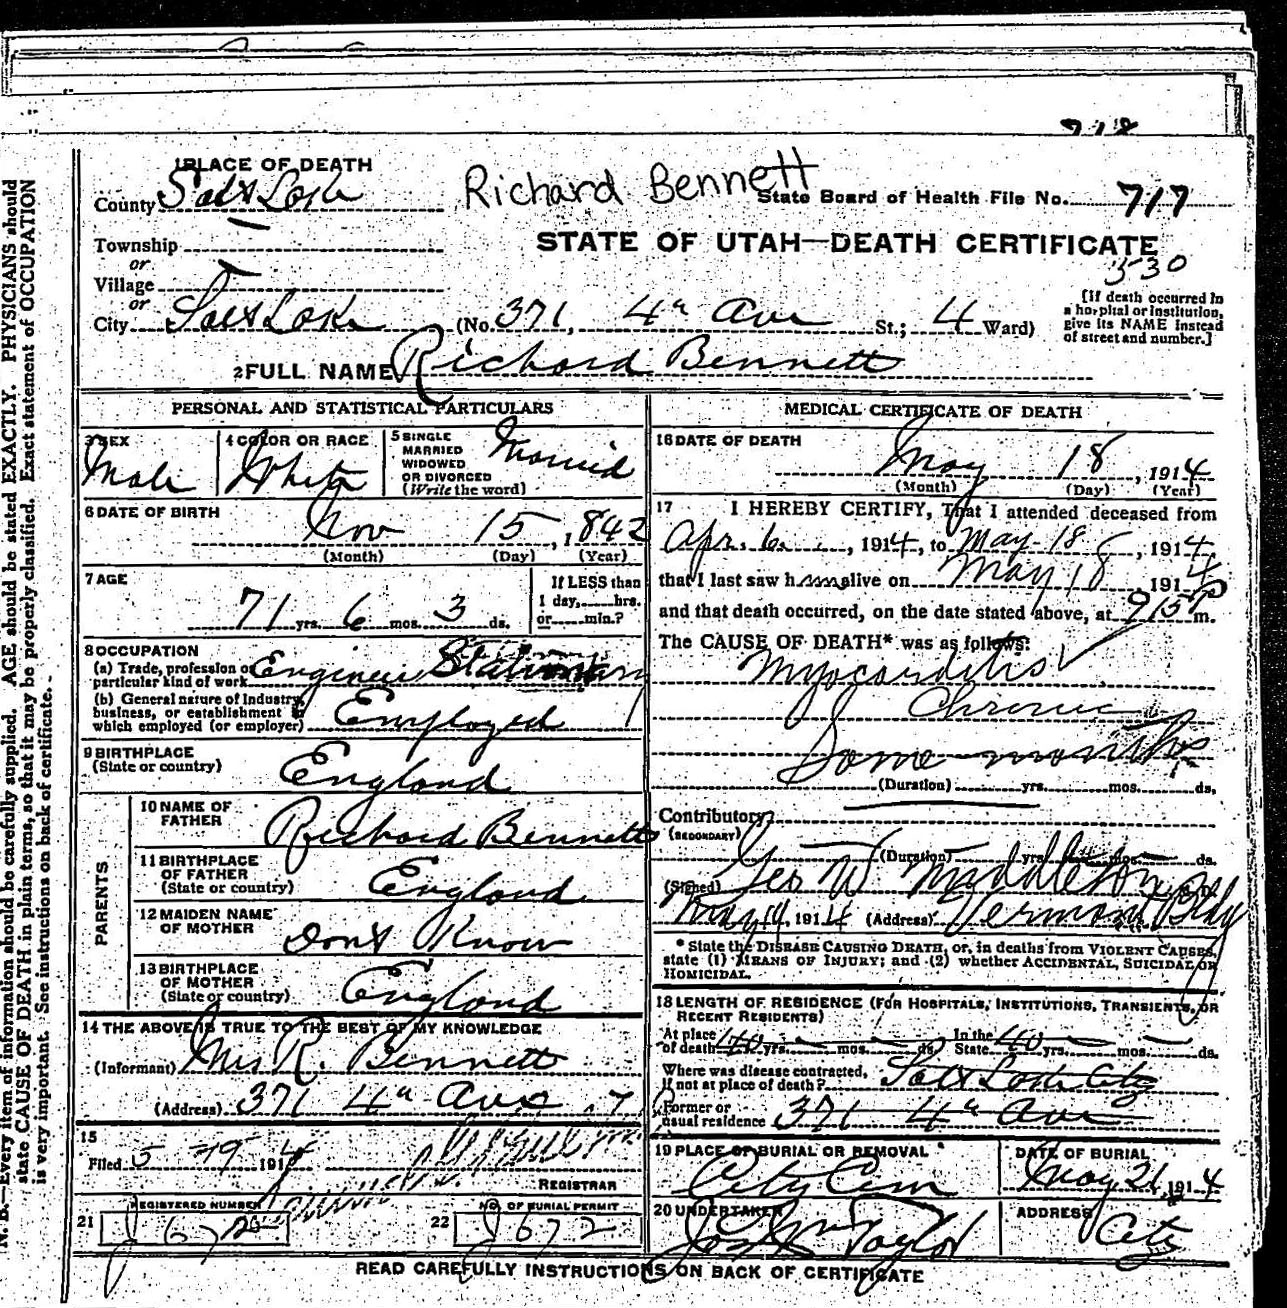 718
1 PLACE OF DEATH
County Salt Lake
Richard Bennett
State Board of Health File No. 717
Township
or
Village
or
City Salt Lake (No. 371, 4th Ave St.; 4 Ward)
STATE OF UTAH—DEATH CERTIFICATE
530
[If death occurred in
a hospital or institution,
give its NAME instead
of street and number.]
2 FULL NAME Richard Bennett
PERSONAL AND STATISTICAL PARTICULARS
3 SEX
Male
4 COLOR OR RACE
White
5 SINGLE
MARRIED
WIDOWED
OR DIVORCED
(Write the word)
Married
6 DATE OF BIRTH
Nov 15, 1842
(Month) (Day) (Year)
7 AGE
71 yrs. 6 mos. 3 ds.
If LESS than
1 day, hrs.
or min.?
8 OCCUPATION
(a) Trade, profession or
particular kind of work Engineer Stationary
(b) General nature of Industry,
business, or establishment in
which employed (or employer) Employed
9 BIRTHPLACE
(State or country)
England
PARENTS
10 NAME OF
FATHER
Richard Bennett
11 BIRTHPLACE
OF FATHER
(State or country)
England
12 MAIDEN NAME
OF MOTHER
Dont Know
13 BIRTHPLACE
OF MOTHER
(State or country)
England
14 THE ABOVE IS TRUE TO THE BEST OF MY KNOWLEDGE
(Informant) Mrs R. Bennett
(Address) 371 4th Ave
15
Filed 5 19 1914
REGISTRAR
21 REGISTERED NUMBER
J 672
22 NO. OF BURIAL PERMIT
J 672
MEDICAL CERTIFICATE OF DEATH
16 DATE OF DEATH
May 18, 1914
(Month) (Day) (Year)
17 I HEREBY CERTIFY, That I attended deceased from
Apr. 6, 1914, to May 18, 1914,
that I last saw him alive on May 18 1914
and that death occurred, on the date stated above, at 915 P m.
The CAUSE OF DEATH* was as follows:
Myocarditis
Chronic
Some months
(Duration) yrs. mos. ds.
Contributory
(SECONDARY)
(Duration) yrs. mos. ds.
(Signed) Geo W Middleton M. D.
May 19, 1914 (Address) Vermont Bldg
* State the DISEASE CAUSING DEATH, or, in deaths from VIOLENT CAUSES,
state (1) MEANS OF INJURY; and (2) whether ACCIDENTAL, SUICIDAL or
HOMICIDAL.
18 LENGTH OF RESIDENCE (FOR HOSPITALS, INSTITUTIONS, TRANSIENTS, OR
RECENT RESIDENTS)
At place
of death 40 yrs. mos. ds.
In the
State 40 yrs. mos. ds.
Where was disease contracted,
if not at place of death? Salt Lake City
Former or
usual residence 371 4th Ave
19 PLACE OF BURIAL OR REMOVAL
City Cem
DATE OF BURIAL
May 21, 1914
20 UNDERTAKER
Taylor
ADDRESS
City
READ CAREFULLY INSTRUCTIONS ON BACK OF CERTIFICATE
N. B.—Every item of information should be carefully supplied. AGE should be stated EXACTLY. PHYSICIANS should
state CAUSE OF DEATH in plain terms, so that it may be properly classified. Exact statement of OCCUPATION
is very important. See instructions on back of certificate.